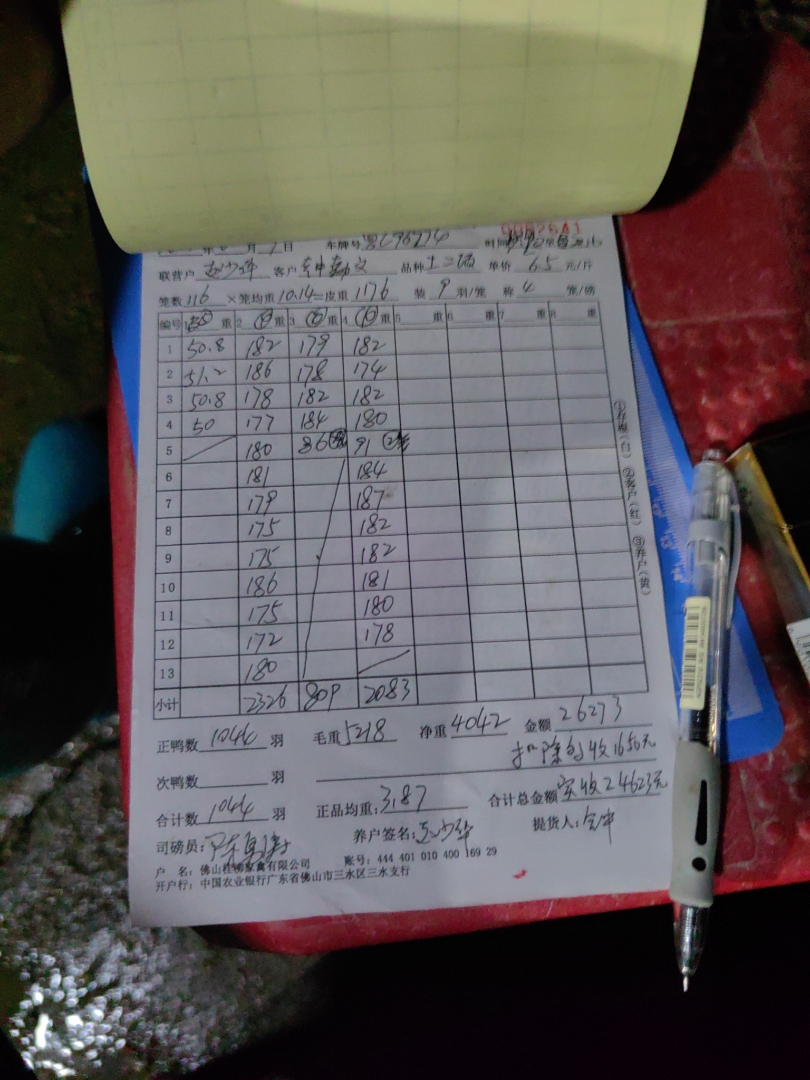 0082641
年 月 7 日 车牌号 时间
联营户 客户 品种 单价 6.5 元/斤
笼数 116 ×笼均重 10.14 =皮重 1176 装 9 羽/笼 称 4 笼/磅
编号 1 重 2 重 3 重 4 重 5 重 6 重 7 重 8 重
1 50.8 182 179 182
2 51.2 186 178 174
3 50.8 178 182 182
4 50 177 184 180
5 180 86 91
6 181 184
7 179 187
8 175 182
9 175 182
10 186 181
11 175 180
12 172 178
13 180
小计 2326 809 2083
①存根(白) ②客户(红) ③养户(黄)
正鸭数 1044 羽 毛重 5218 净重 4042 金额 26273
扣除 收1650元
次鸭数 羽
合计数 1044 羽 正品均重: 3.87 合计总金额 实收24623元
司磅员: 养户签名: 提货人:
户 名: 佛山 禽有限公司 账号: 444 401 010 400 169 29
开户行: 中国农业银行广东省佛山市三水区三水支行